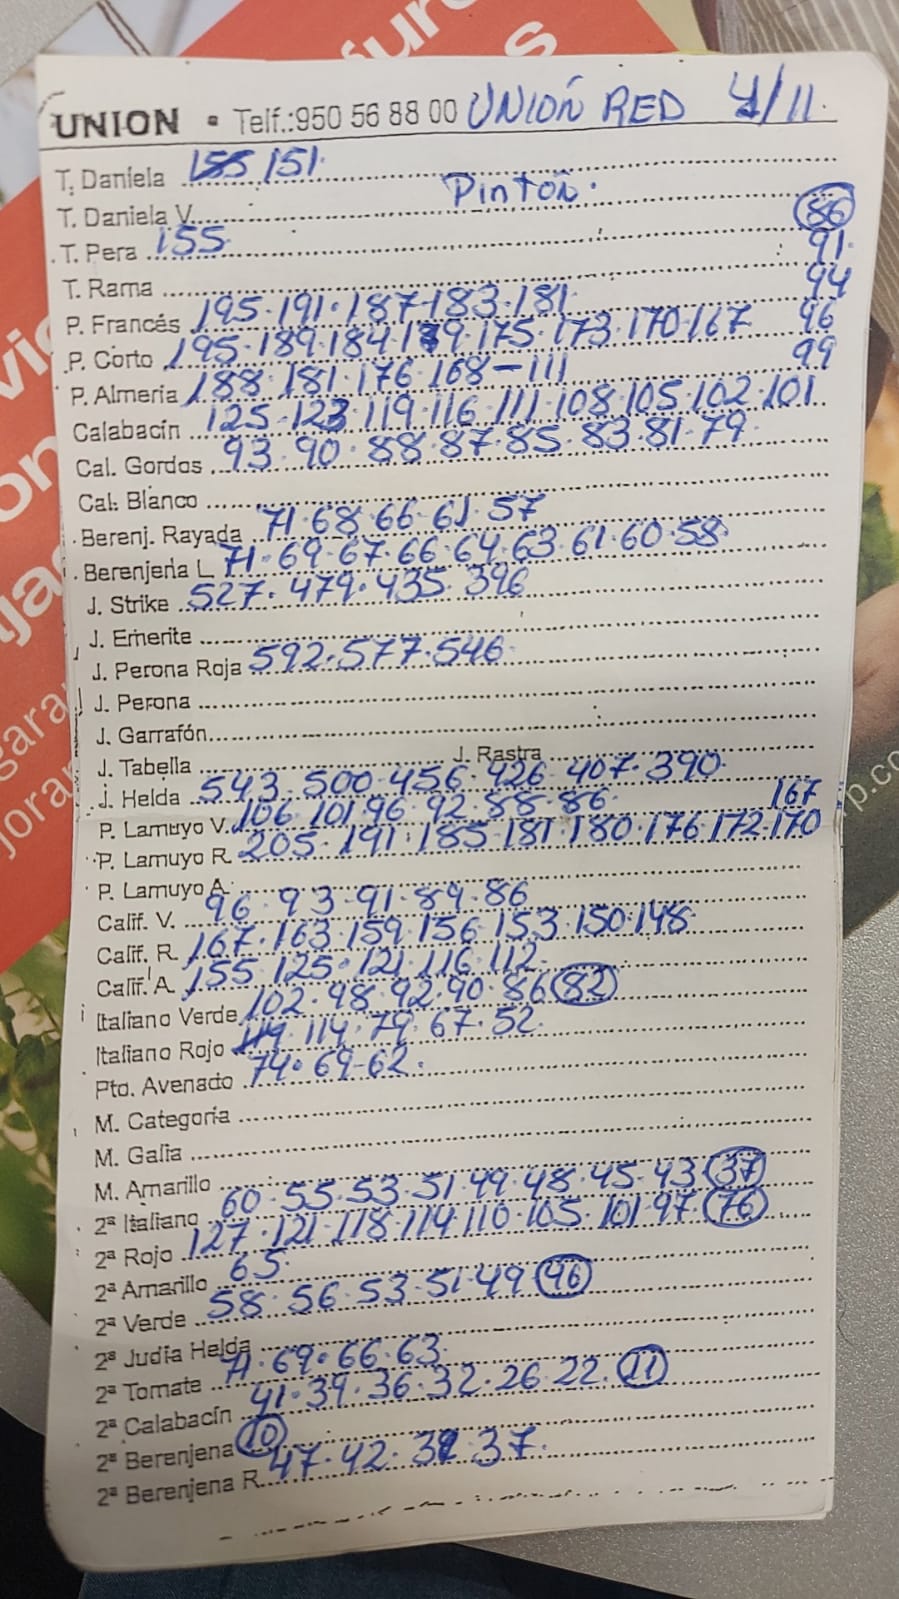 UNION • Telf.:950 56 88 00 UNIOÑ RED 4/11.
T. Daniela 155 151.
T. Daniela V. Pintoñ.
T. Pera 155 (86)
T. Rama 91.
P. Francés 195.191.187-183.181. 94
P. Corto 195.189.184.179.175.173.170.167 96
P. Almería 188.181.176.168-111 99
Calabacín 125.123.119.116.111.108.105.102.101
Cal. Gordos 93.90.88.87.85.83.81.79.
Cal. Blanco
Berenj. Rayada 71.68.66.61.57
Berenjena L. 71.69.67.66.64.63.61.60.58.
J. Strike 527.479.435.396
J. Emerite
J. Perona Roja 592.577.546.
J. Perona
J. Garrafón
J. Tabella J. Rastra
J. Helda 543.500.456.426.407.390.
P. Lamuyo V. 106.101.96.92.88.86. 167
P. Lamuyo R. 205.191.185.181.180.176.172.170
P. Lamuyo A.
Calif. V. 96.93.91.89.86
Calif. R. 167.163.159.156.153.150.148
Calif. A. 155.125.121.116.112.
Italiano Verde 102.98.92.90.86 (82)
Italiano Rojo 119.114.79.67.52.
Pto. Avenado 74.69-62.
M. Categoría
M. Galia
M. Amarillo
2ª Italiano 60.55.53.51.49.48.45.43 (37)
2ª Rojo 127.121.118.114.110.105.101.97. (76)
2ª Amarillo 65.
2ª Verde 58.56.53.51.49 (46)
2ª Judía Helda
2ª Tomate 71.69.66.63.
2ª Calabacín 41.39.36.32.26.22. (11)
2ª Berenjena (10)
2ª Berenjena R. 47.42.39 37.